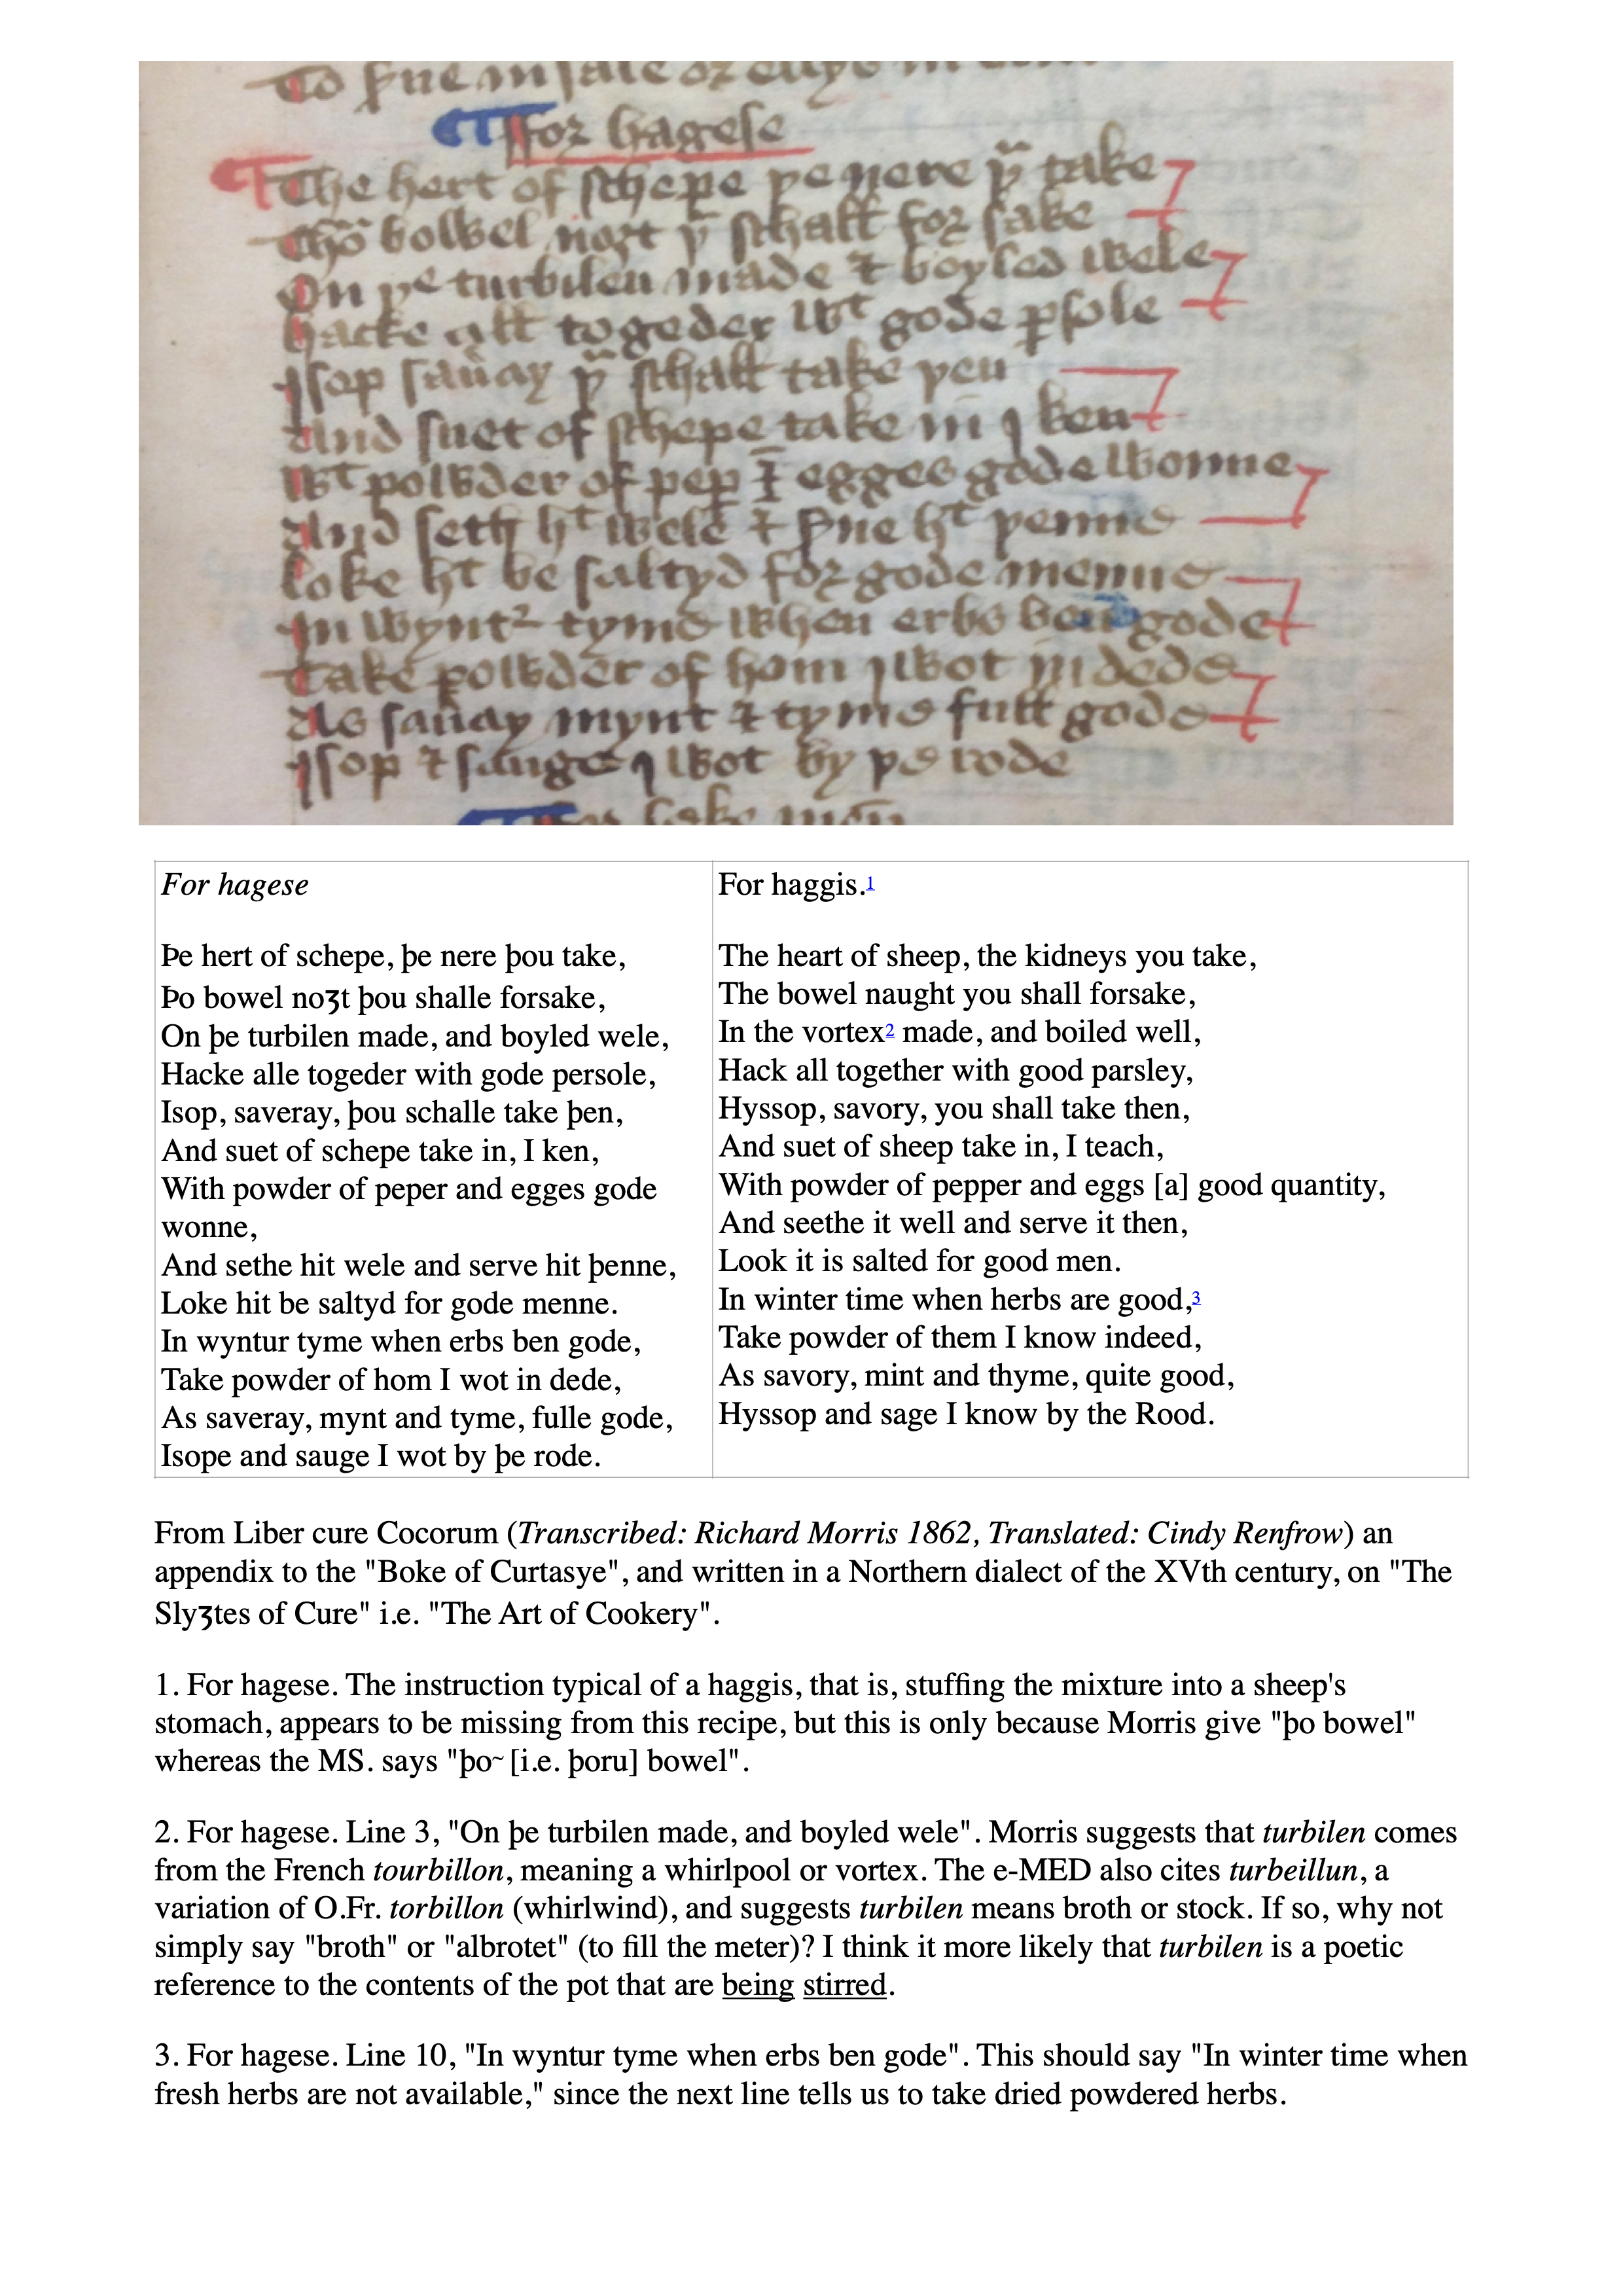 for hagese
The hert of schepe þe nere þ take
Tho bowel noʒt þ schall for sake
On þe turbilen made & boyled wele
hacke all togeder wt gode psole
Isop sauay þ schall take þen
And suet of schepe take in I ken
wt powder of pep & egges gode wonne
And seth ht wele & sue ht þenne
Loke ht be saltyd for gode menne
In wynt tyme when erbs ben gode
Take powder of hom I wot in dede
As sauay mynt & tyme full gode
Isop & sauge I wot by þe rode
For hagese
Þe hert of schepe, þe nere þou take,
Þo bowel noʒt þou shalle forsake,
On þe turbilen made, and boyled wele,
Hacke alle togeder with gode persole,
Isop, saveray, þou schalle take þen,
And suet of schepe take in, I ken,
With powder of peper and egges gode
wonne,
And sethe hit wele and serve hit þenne,
Loke hit be saltyd for gode menne.
In wyntur tyme when erbs ben gode,
Take powder of hom I wot in dede,
As saveray, mynt and tyme, fulle gode,
Isope and sauge I wot by þe rode.
For haggis.1
The heart of sheep, the kidneys you take,
The bowel naught you shall forsake,
In the vortex2 made, and boiled well,
Hack all together with good parsley,
Hyssop, savory, you shall take then,
And suet of sheep take in, I teach,
With powder of pepper and eggs [a] good quantity,
And seethe it well and serve it then,
Look it is salted for good men.
In winter time when herbs are good,3
Take powder of them I know indeed,
As savory, mint and thyme, quite good,
Hyssop and sage I know by the Rood.
From Liber cure Cocorum (Transcribed: Richard Morris 1862, Translated: Cindy Renfrow) an
appendix to the "Boke of Curtasye", and written in a Northern dialect of the XVth century, on "The
Slyʒtes of Cure" i.e. "The Art of Cookery".
1. For hagese. The instruction typical of a haggis, that is, stuffing the mixture into a sheep's
stomach, appears to be missing from this recipe, but this is only because Morris give "þo bowel"
whereas the MS. says "þo~ [i.e. þoru] bowel".
2. For hagese. Line 3, "On þe turbilen made, and boyled wele". Morris suggests that turbilen comes
from the French tourbillon, meaning a whirlpool or vortex. The e-MED also cites turbeillun, a
variation of O.Fr. torbillon (whirlwind), and suggests turbilen means broth or stock. If so, why not
simply say "broth" or "albrotet" (to fill the meter)? I think it more likely that turbilen is a poetic
reference to the contents of the pot that are being stirred.
3. For hagese. Line 10, "In wyntur tyme when erbs ben gode". This should say "In winter time when
fresh herbs are not available," since the next line tells us to take dried powdered herbs.